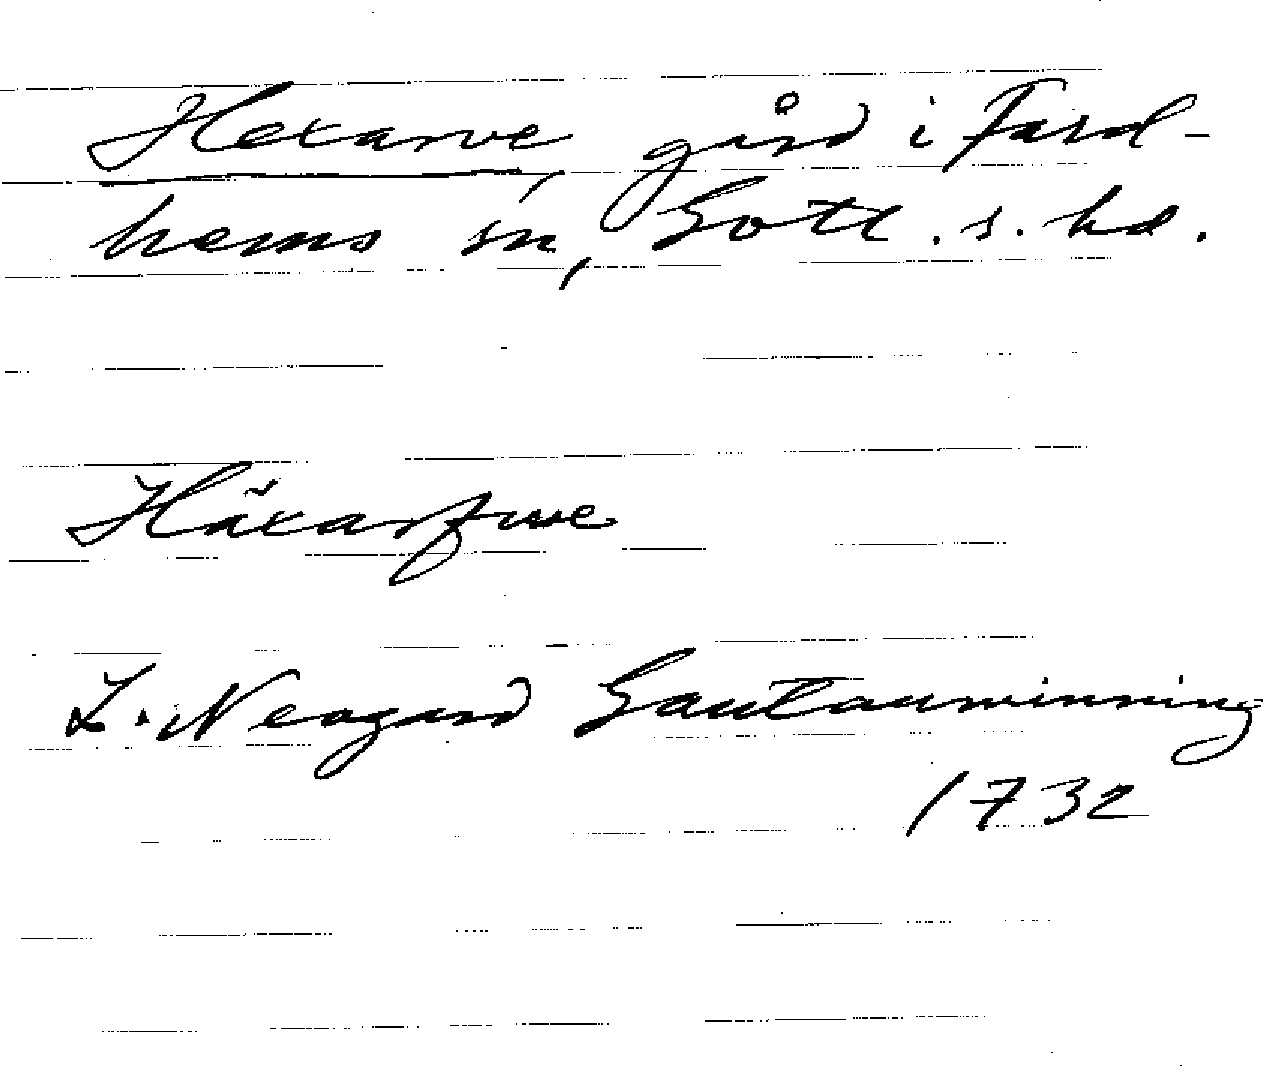 Hexarve, gård i Fard-
hems sn, Gotl. s. hd.
Häxarfwe
L. Neogard Gautauminning
1732